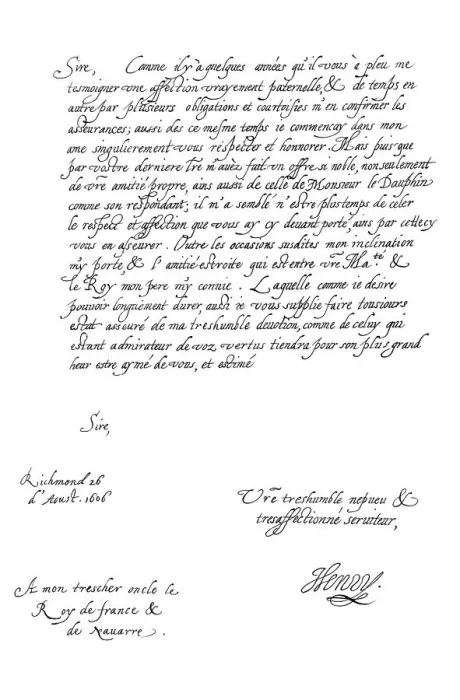 Sire, Comme il y à quelques années qu'il vous à pleu me
tesmoigner une affection vrayement paternelle, & de temps en
autre par plusieurs obligations et courtoisies m'en confirmer les
asseurances; aussi des ce mesme temps ie commencay dans mon
ame singulierement vous respecter et honnorer. Mais puis que
par vostre derniere lr̃e m'avèz fait un offre si noble, nonseulement
de vr̃e amitié propre, ains aussi de celle de Monsieur le Dauphin
comme son respondant; il m'a semblé n'estre plustemps de celer
le respect et affection que vous ay cy devant porté, ains par cettecy
vous en asseurer. Outre les occasions susdites mon inclination
m'y porte, & l'amitié estroite qui est entre vr̃e Ma.té &
le Roy mon pere m'y convie. Laquelle comme ie desire
pouvoir longuement durer, aussi ie vous supplie faire tousiours
estat asseuré de ma treshumble devotion, comme de celuy qui
estant admirateur de voz vertus tiendra pour son plus grand
heur estre aymé de vous, et estimé
Sire,
Richmond 26
d'Aoust. 1606
Vr̃e treshumble nepueu &
tresaffectionné seruiteur,
Henry.
A mon trescher oncle le
Roy de france &
de Nauarre.